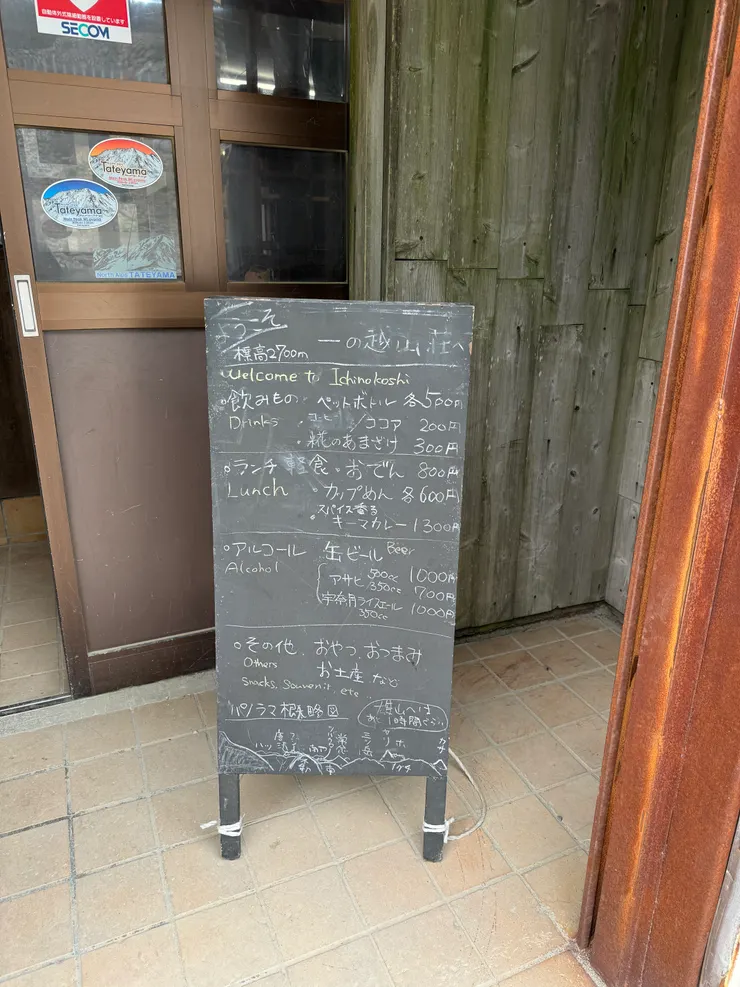 自動体外式除細動器を設置しています
SECOM
Tateyama
Tateyama
North Alps TATEYAMA
ようこそ
標高2700m 一の越山荘へ
welcome to Ichinokoshi
飲みもの・ペットボトル 各500円
Drinks ・コーヒー/ココア 200円
・糀のあまざけ 300円
ランチ 軽食・おでん 800円
Lunch ・カップめん 各600円
・スパイス香る
キーマカレー 1300円
アルコール 缶ビール Beer
Alcohol
アサヒ 500cc 1000円
350cc 700円
宇奈月ライスエール 1000円
350cc
その他、おやつ、おつまみ
Others お土産 など
Snacks, Souvenir, etc..
パノラマ概略図
雄山へは
あと1時間ぐらい